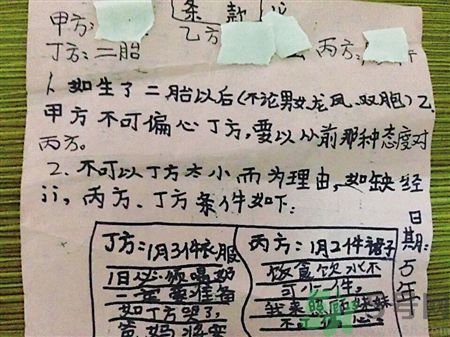 条款
甲方:
乙方
丙方:
丁方:二胎
1、如生了二胎以后(不论男女龙凤、双胞)乙
甲方不可偏心丁方,要以从前那种态度对
丙方。
2、不可以丁方太小而为理由,如缺经
济,丙方、丁方条件如下:
丁方:1月3件衣服
1日必须喝奶
一定要准备
如丁方哭了,
爸妈将要
丙方:1月2件裙子
饭食饮水不
可少一件,
我来照顾妹妹
日期:万年